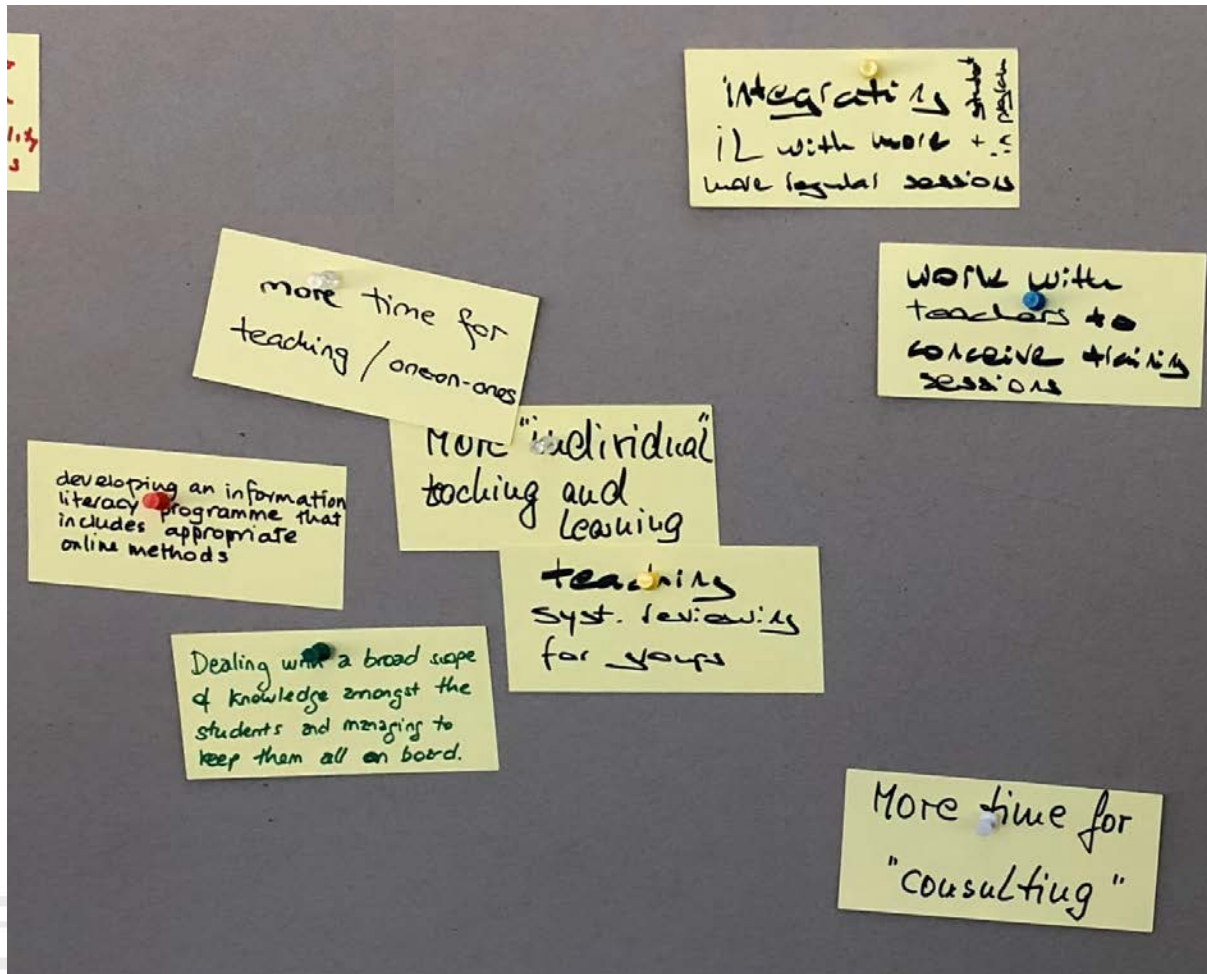 lity
s
integrating
IL with more +
more regular sessions
student
work with
teachers to
conceive training
sessions
more time for
teaching / one-on-ones
More "individual"
teaching and
learning
developing an information
literacy programme that
includes appropriate
online methods
teaching
syst. reviewing
for groups
Dealing with a broad scope
of knowledge amongst the
students and managing to
keep them all on board.
More time for
"consulting"